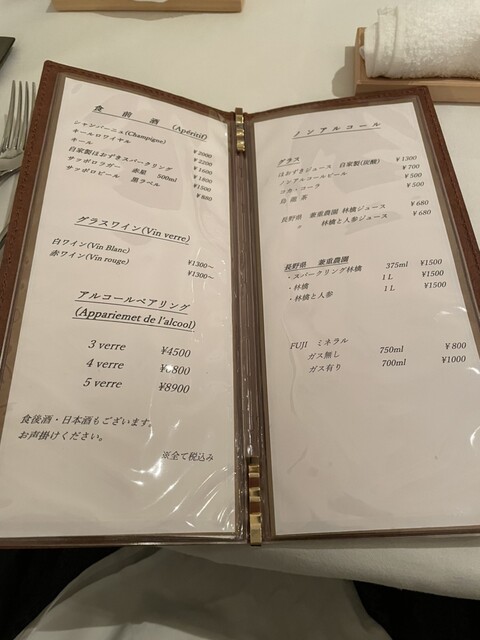 食 前 酒 (Apéritif)
シャンパーニュ(Champigne) ¥2000
キールロワイヤル ¥2200
キール ¥1600
自家製ほおずきスパークリング ¥1800
サッポロラガー 赤星 500ml ¥1500
サッポロビール 黒ラベル ¥880
グラスワイン(Vin verre)
白ワイン(Vin Blanc) ¥1300～
赤ワイン(Vin rouge) ¥1300～
アルコールペアリング
(Appariemet de l'alcool)
3 verre ¥4500
4 verre
5 verre ¥8900
食後酒・日本酒もございます。
お声掛けください。
※全て税込み
ノンアルコール
グラス
ほおずきジュース 自家製(炭酸) ¥1300
ノンアルコールビール ¥700
コカ・コーラ ¥500
烏龍茶 ¥500
長野県 兼重農園 林檎ジュース ¥680
〃 林檎と人参ジュース ¥680
長野県 兼重農園
・スパークリング林檎 375ml ¥1500
・林檎 1L ¥1500
・林檎と人参 1L ¥1500
FUJI ミネラル
ガス無し 750ml ¥800
ガス有り 700ml ¥1000